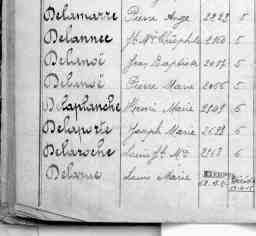 Delamarre Pierre Ange 2223 5
Delannee Jh Me Théophile 5
Delanoë Jean Baptiste 2017 5
Delanoë Pierre Marie 2055 5
Delaplanche Henri Marie 5
Delaporte Joseph Marie 5
Delaroche Louis Jh Me 5
Delarue Louis Marie